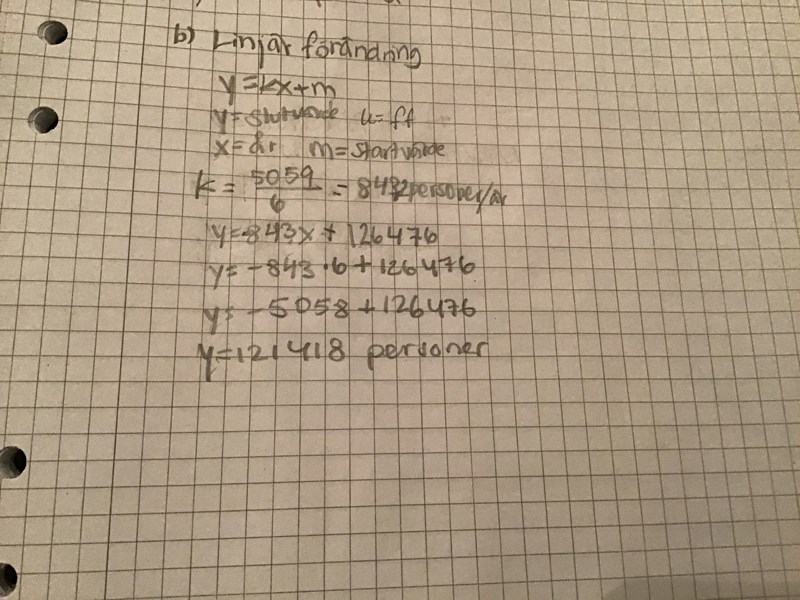 b) Linjär förändring
y=kx+m
y=slutvärde k=ff
x=år m=startvärde
k = 5059/6 = 843 personer/år
y=-843x+126476
y=-843·6+126476
y=-5058+126476
y=121418 personer